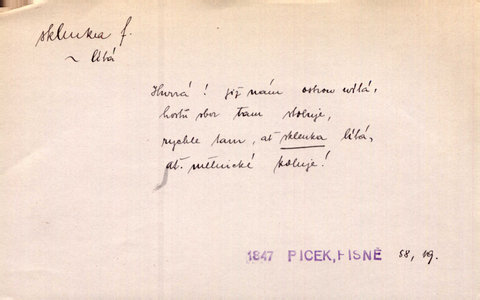 sklenka f.
~ lítá
Hurrá! již nám ostrow wítá,
hostů sbor tam stoluje,
rychle tam, ať sklenka lítá,
ať mělnické koluje!
1847 PICEK, PISNĚ 58, 19.